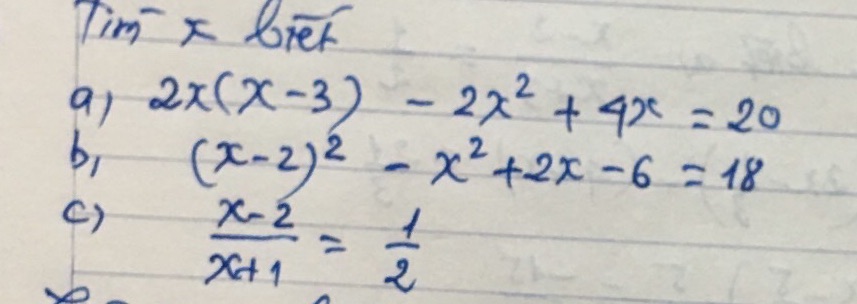 Tìm x biết
a, 2x(x-3) - 2x² + 4x = 20
b, (x-2)² - x² + 2x - 6 = 18
c) x-2 / x+1 = 1/2